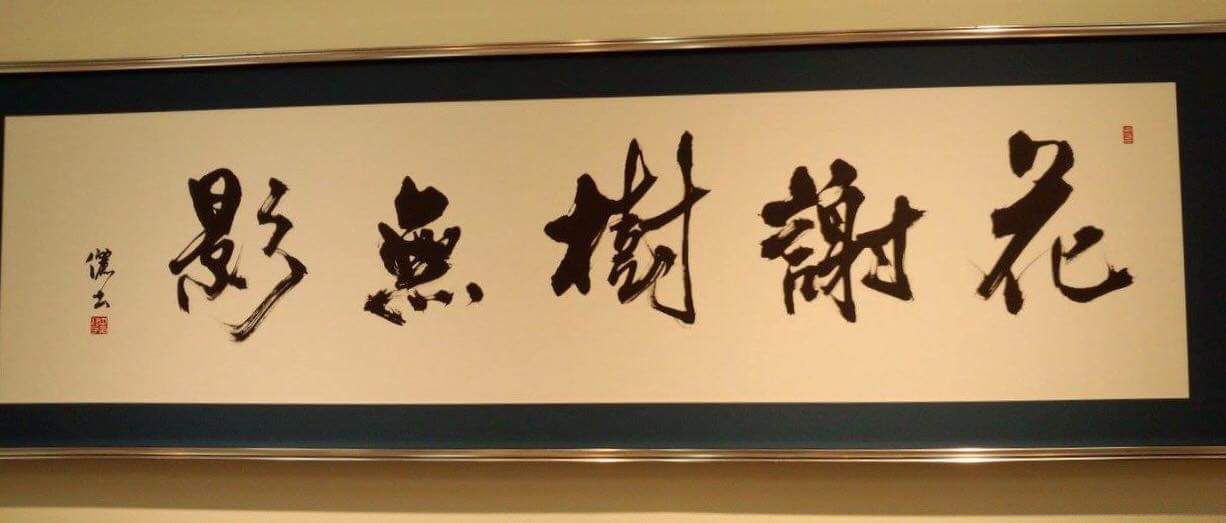 花謝樹無影